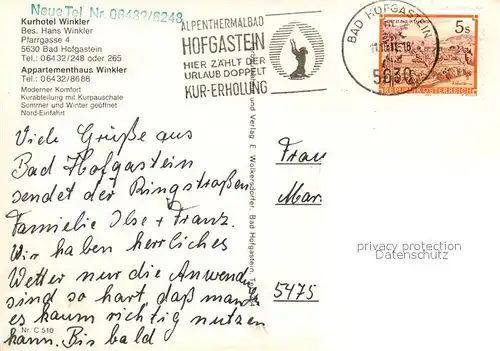 Neue Tel. Nr. 06432/6248
Kurhotel Winkler
Bes. Hans Winkler
Pfarrgasse 4
5630 Bad Hofgastein
Tel.: 06432/248 oder 265
Appartementhaus Winkler
Tel.: 06432/8688
Moderner Komfort
Kurabteilung mit Kurpauschale
Sommer und Winter geöffnet
Nord-Einfahrt
ALPENTHERMALBAD
HOFGASTEIN
HIER ZÄHLT DER
URLAUB DOPPELT
KUR-ERHOLUNG
BAD HOFGASTEIN
5630
5 S
REPUBLIK ÖSTERREICH
Viele Grüße aus
Bad Hofgastein
sendet der Ringstraßen
Familie Ilse + Franz.
Wir haben herrliches
Wetter nur die Anwendu
sind so hart, daß man
es kaum richtig nutzen
kann. Bis bald
und Verlag E. Wolkersdorfer, Bad Hofgastein, Tel.
Frau
Mar
5475
privacy protection
Datenschutz
Nr. C 510